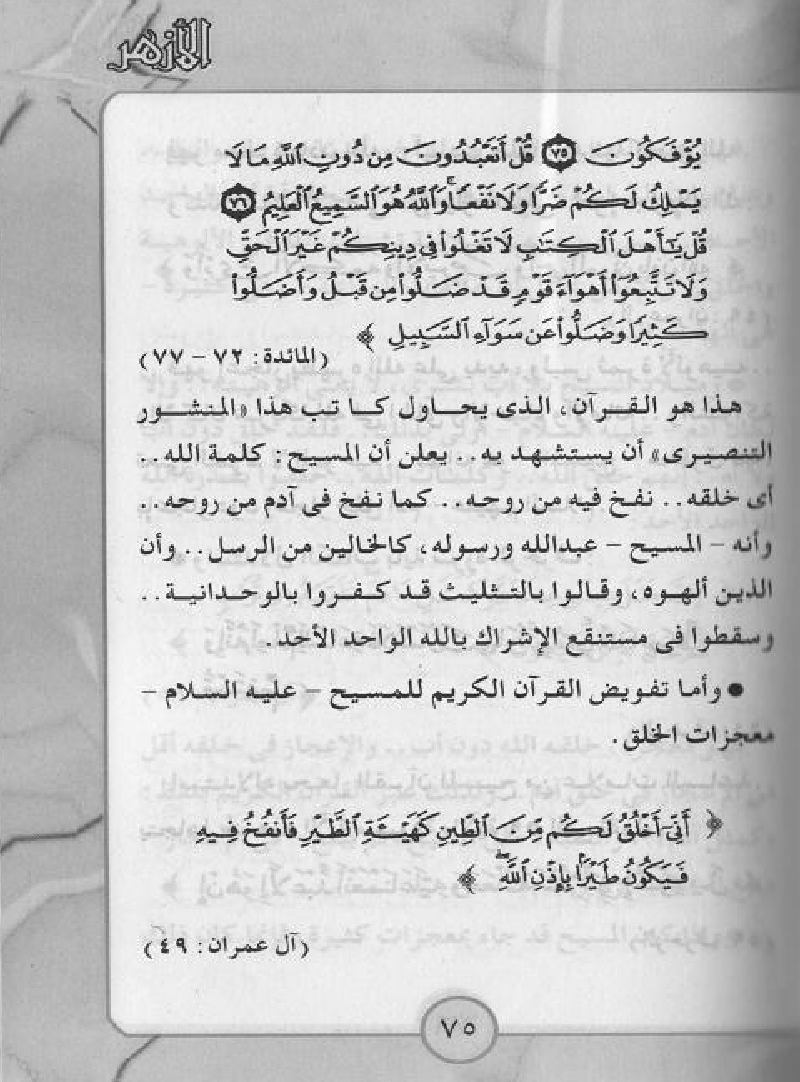 الأزهر
يُؤْفَكُونَ ﴿٧٥﴾ قُلْ أَتَعْبُدُونَ مِن دُونِ اللَّهِ مَا لَا
يَمْلِكُ لَكُمْ ضَرًّا وَلَا نَفْعًا وَاللَّهُ هُوَ السَّمِيعُ الْعَلِيمُ ﴿٧٦﴾
قُلْ يَا أَهْلَ الْكِتَابِ لَا تَغْلُوا فِي دِينِكُمْ غَيْرَ الْحَقِّ
وَلَا تَتَّبِعُوا أَهْوَاءَ قَوْمٍ قَدْ ضَلُّوا مِن قَبْلُ وَأَضَلُّوا
كَثِيرًا وَضَلُّوا عَن سَوَاءِ السَّبِيلِ ﴾
(المائدة: ٧٢ – ٧٧)
هذا هو القرآن، الذى يحاول كاتب هذا «المنشور
التنصيرى» أن يستشهد به.. يعلن أن المسيح: كلمة الله..
أى خلقه.. نفخ فيه من روحه.. كما نفخ فى آدم من روحه..
وأنه – المسيح – عبدالله ورسوله، كالخالين من الرسل.. وأن
الذين ألهوه، وقالوا بالتثليث قد كفروا بالوحدانية..
وسقطوا فى مستنقع الإشراك بالله الواحد الأحد.
● وأما تفويض القرآن الكريم للمسيح – عليه السلام –
معجزات الخلق.
﴿ أَنِّي أَخْلُقُ لَكُم مِّنَ الطِّينِ كَهَيْئَةِ الطَّيْرِ فَأَنفُخُ فِيهِ
فَيَكُونُ طَيْرًا بِإِذْنِ اللَّهِ ﴾
(آل عمران: ٤٩)
٧٥